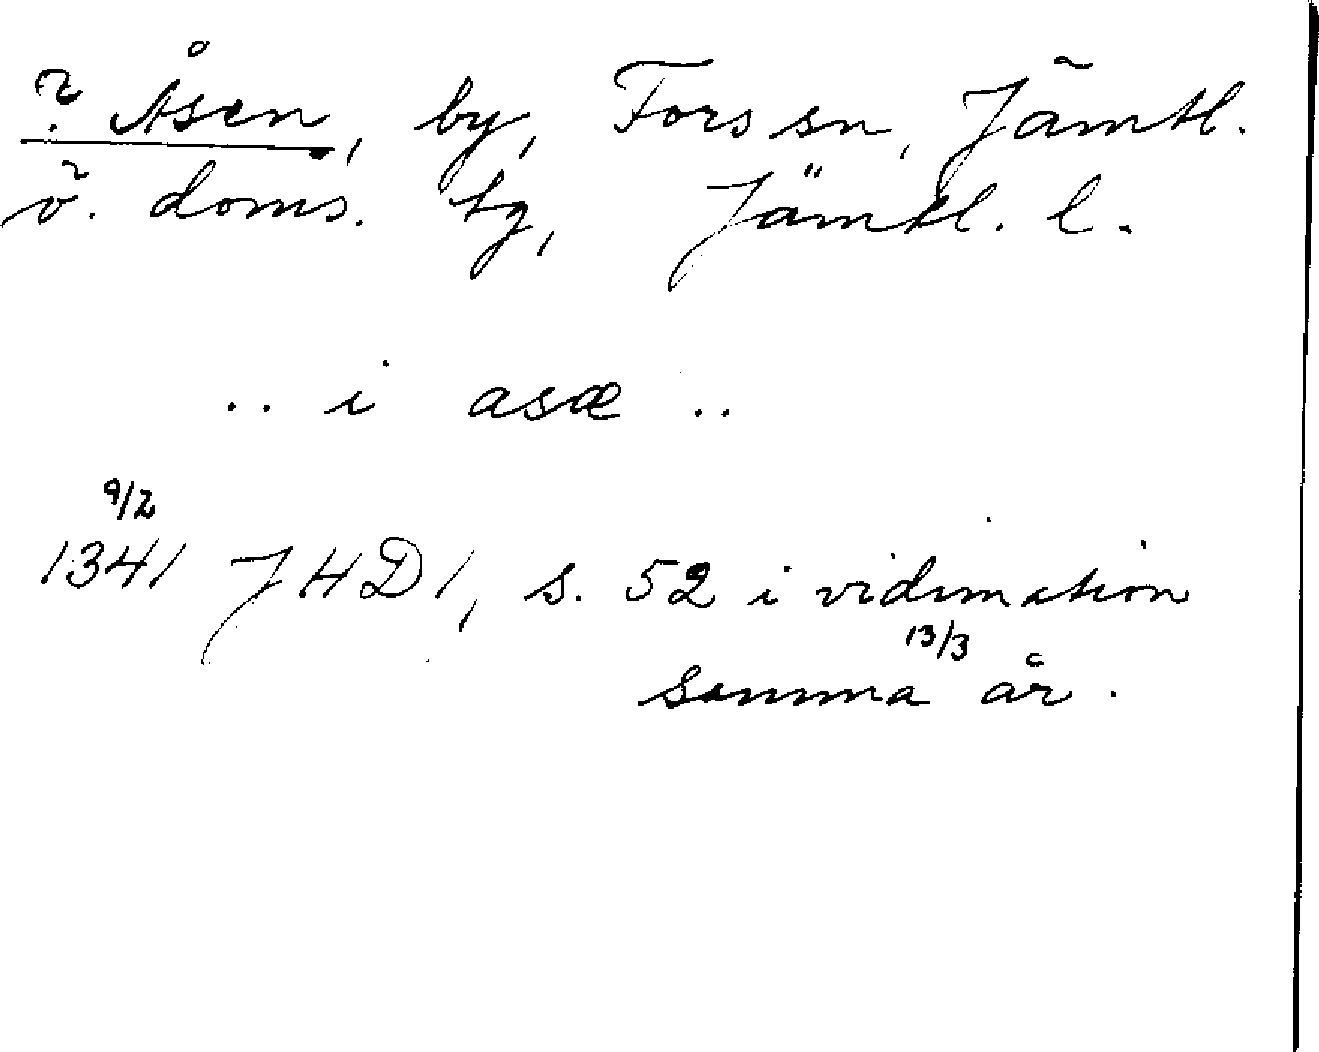 ? Åsen, by, Fors sn, Jämtl.
ö. doms. tg, Jämtl. l.
.. i asæ ..
9/2
1341 JHD 1, s. 52 i vidimation
13/3
samma år.